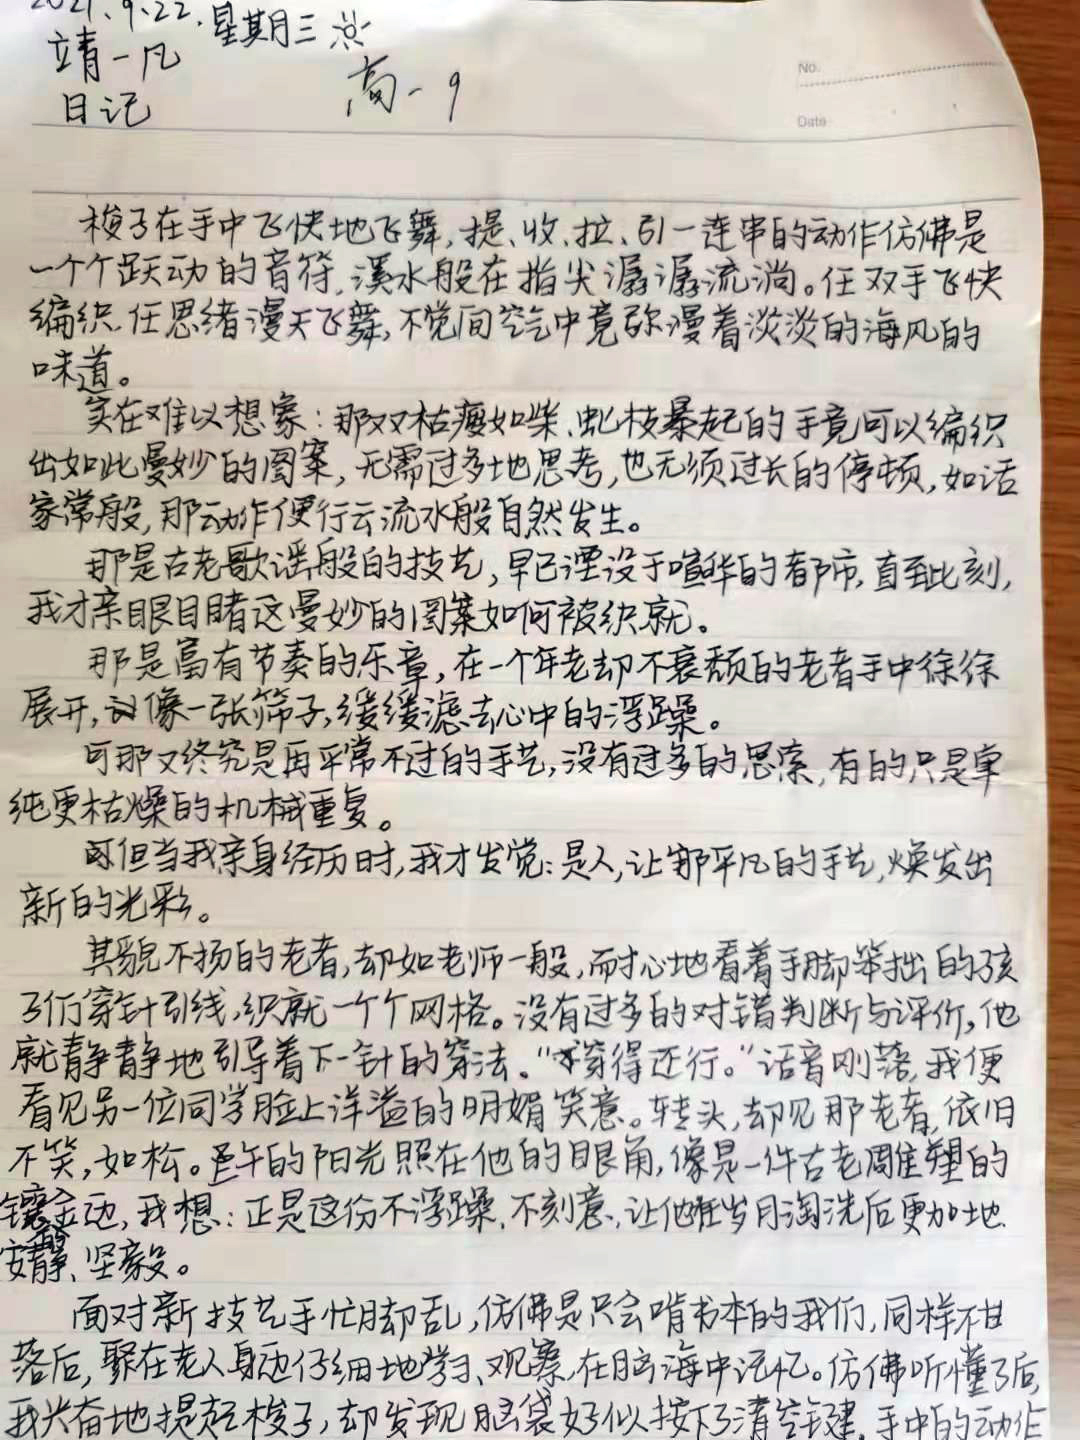 2021.9.22.星期三
靖一凡
高一9
日记
No.
Date
梭子在手中飞快地飞舞,提、收、拉、引一连串的动作仿佛是
一个个跃动的音符,溪水般在指尖潺潺流淌。任双手飞快
编织,任思绪漫天飞舞,不觉间空气中竟弥漫着淡淡的海风的
味道。
实在难以想象:那双枯瘦如柴、虬枝暴起的手竟可以编织
出如此曼妙的图案,无需过多地思考,也无须过长的停顿,如话
家常般,那动作便行云流水般自然发生。
那是古老歌谣般的技艺,早已湮没于喧哗的都市,直至此刻,
我才亲眼目睹这曼妙的图案如何被织就。
那是富有节奏的乐章,在一个年老却不衰颓的老者手中徐徐
展开,像一张筛子,缓缓滤去心中的浮躁。
可那又终究是再平常不过的手艺,没有过多的思索,有的只是单
纯更枯燥的机械重复。
但当我亲身经历时,我才发觉:是人,让那平凡的手艺,焕发出
新的光彩。
其貌不扬的老者,却如老师一般,耐心地看着手脚笨拙的孩
子们穿针引线,织就一个个网格。没有过多的对错判断与评价,他
就静静地引导着下一针的穿法。“穿得还行。”话音刚落,我便
看见另一位同学脸上洋溢的明媚笑意。转头,却见那老者,依旧
不笑,如松。正午的阳光照在他的眼角,像是一件古老雕塑的
镶金边,我想:正是这份不浮躁,不刻意,让他在岁月淘洗后更加地
安静、坚毅。
面对新技艺手忙脚乱,仿佛是只会啃书本的我们,同样不甘
落后,聚在老人身边仔细地学习、观察,在脑海中记忆。仿佛听懂了后,
我兴奋地提起梭子,却发现脑袋好似按下了清空键,手中的动作